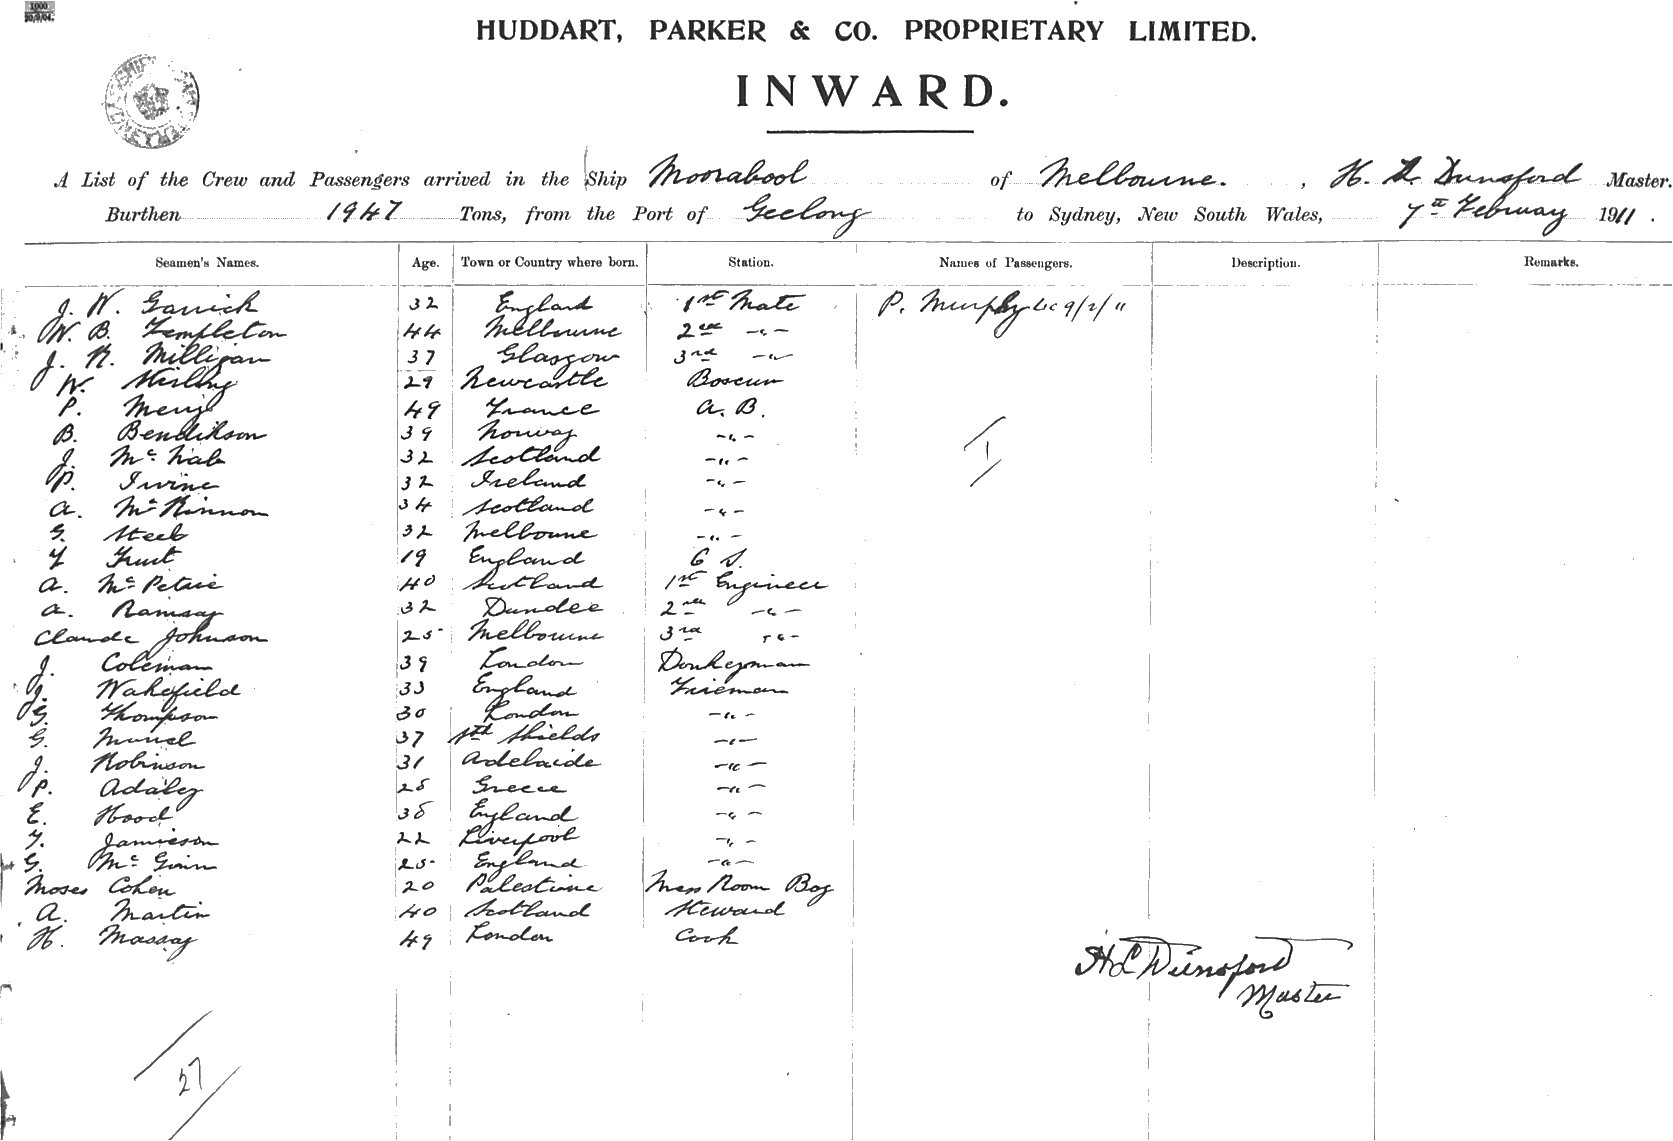 1000
HUDDART, PARKER & CO. PROPRIETARY LIMITED.
INWARD.
A List of the Crew and Passengers arrived in the Ship Moorabool of Melbourne. , H. L. Dunsford Master.
Burthen 1947 Tons, from the Port of Geelong to Sydney, New South Wales, 7th February 1911.
Seamen's Names. Age. Town or Country where born. Station. Names of Passengers. Description. Remarks.
J. W. Garrick 32 England 1st Mate P. Murphy 9/2/11
W. B. Templeton 44 Melbourne 2nd -"-
J. R. Milligan 37 Glasgow 3rd -"-
W. Stirling 29 Newcastle Boscun
P. 49 France A.B.
B. Bendikson 39 Norway -"-
J. McNab 32 Scotland -"-
P. Irvine 32 Ireland -"-
A. McKinnon 34 Scotland -"-
G. Steel 32 Melbourne -"-
F Trust 19 England O S.
A. McPetrie 40 Scotland 1st Engineer
A. Ramsay 32 Dundee 2nd -"-
Claude Johnson 25 Melbourne 3rd -"-
J. Coleman 39 London Donkeyman
J. Wakefield 33 England Fireman
G. Thompson 30 London -"-
G. 37 Sth Shields -"-
J. Robinson 31 Adelaide -"-
P. 25 Greece -"-
E. Hood 38 England -"-
F. Jamieson 22 Liverpool -"-
G. 25 England -"-
Moses Cohen 20 Palestine Mess Room Boy
A. Martin 40 Scotland Steward
H. Massay 49 London Cook
H L Dunsford
Master
1
27